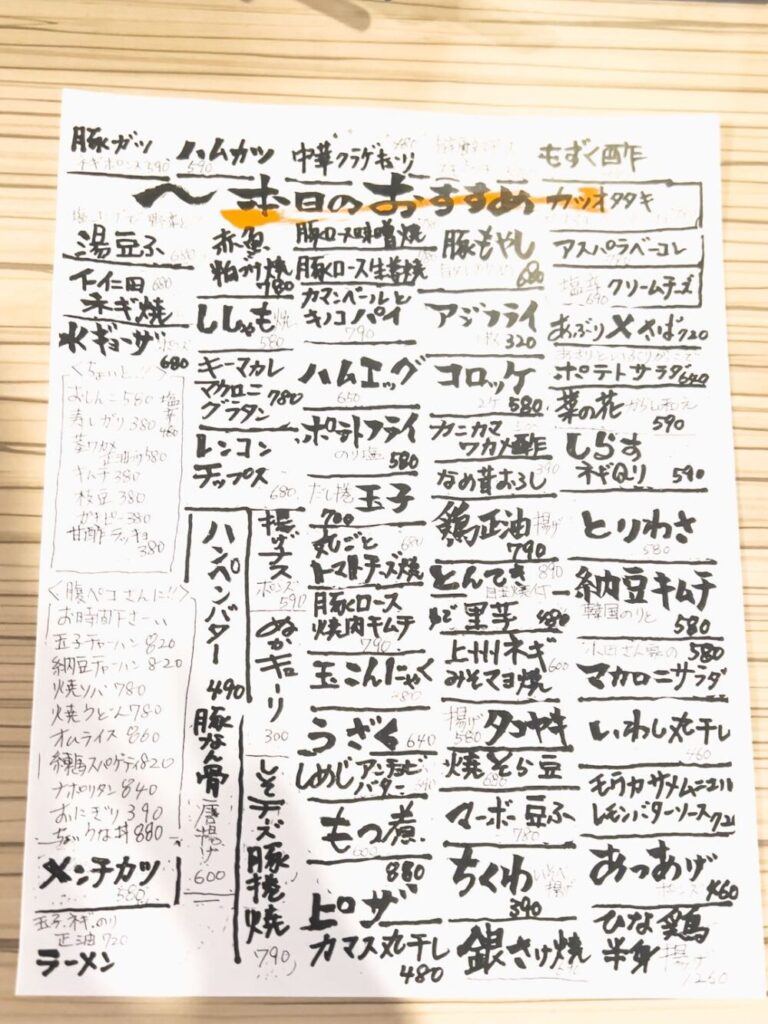 豚ガツ
ネギポンズ 390
ハムカツ
590
中華クラゲキューリ
480
もずく酢
本日のおすすめ
カツオタタキ
湯豆ふ
680
下仁田
ネギ焼
680
水ギョーザ
680
赤魚
粕づけ焼
780
ししゃも焼
580
キーマカレ
マカロニ
グラタン
780
レンコン
チップス
680
豚ロース味噌焼
豚ロース生姜焼
カマンベールと
キノコパイ
790
ハムエッグ
650
ポテトフライ
のり塩
580
だし巻玉子
700
丸ごと
トマトチーズ焼
680
豚ロース
焼肉キムチ
790
玉こんにゃく
うざく
640
しめじアンチョビ
バター
もつ煮
600
880
ピザ
カマス丸干し
480
豚もやし
680
アジフライ
320
コロッケ
2ケ 580
カニカマ
ワカメ酢
なめ茸おろし
390
鶏正油揚げ
790
とんてき
890
目玉焼付
ゆで里芋
480
上州ネギ
みそマヨ焼
600
揚げタコヤキ
580
焼そら豆
680
マーボー豆ふ
780
ちくわいそべ揚げ
390
銀さけ焼
アスパラベーコン
塩辛クリームチーズ
690
あぶり〆さば 720
ポテトサラダ 640
菜の花からし和え
590
しらす
ネギQリ
590
とりわさ
580
納豆キムチ
韓国のりと
580
580
マカロニサラダ
いわし丸干し
460
モウカサメムニエル
レモンバターソース
あつあげ
460
ひな鶏
半身
揚げ
1260
<ちょいと…!!>
おしんこ 580
塩辛 480
寿しガリ 380
茎ワカメ
正油づけ 580
キムチ 380
枝豆 380
かキピー 380
甘酢ラッキョ
380
<腹ペコさんに!!>
お時間下さーい
玉子チャーハン 820
納豆チャーハン 820
焼ソバ 780
焼うどん 780
オムライス 860
ナポリタン 840
おにぎり 390
ちょっクな丼 880
メンチカツ
580
玉子.ネギ.のり
正油 720
ラーメン
ハンペンバター
490
豚なん骨
唐揚げ
600
揚げナス
ポンズ
590
ぬかキューリ
300
しそチーズ豚巻焼
790